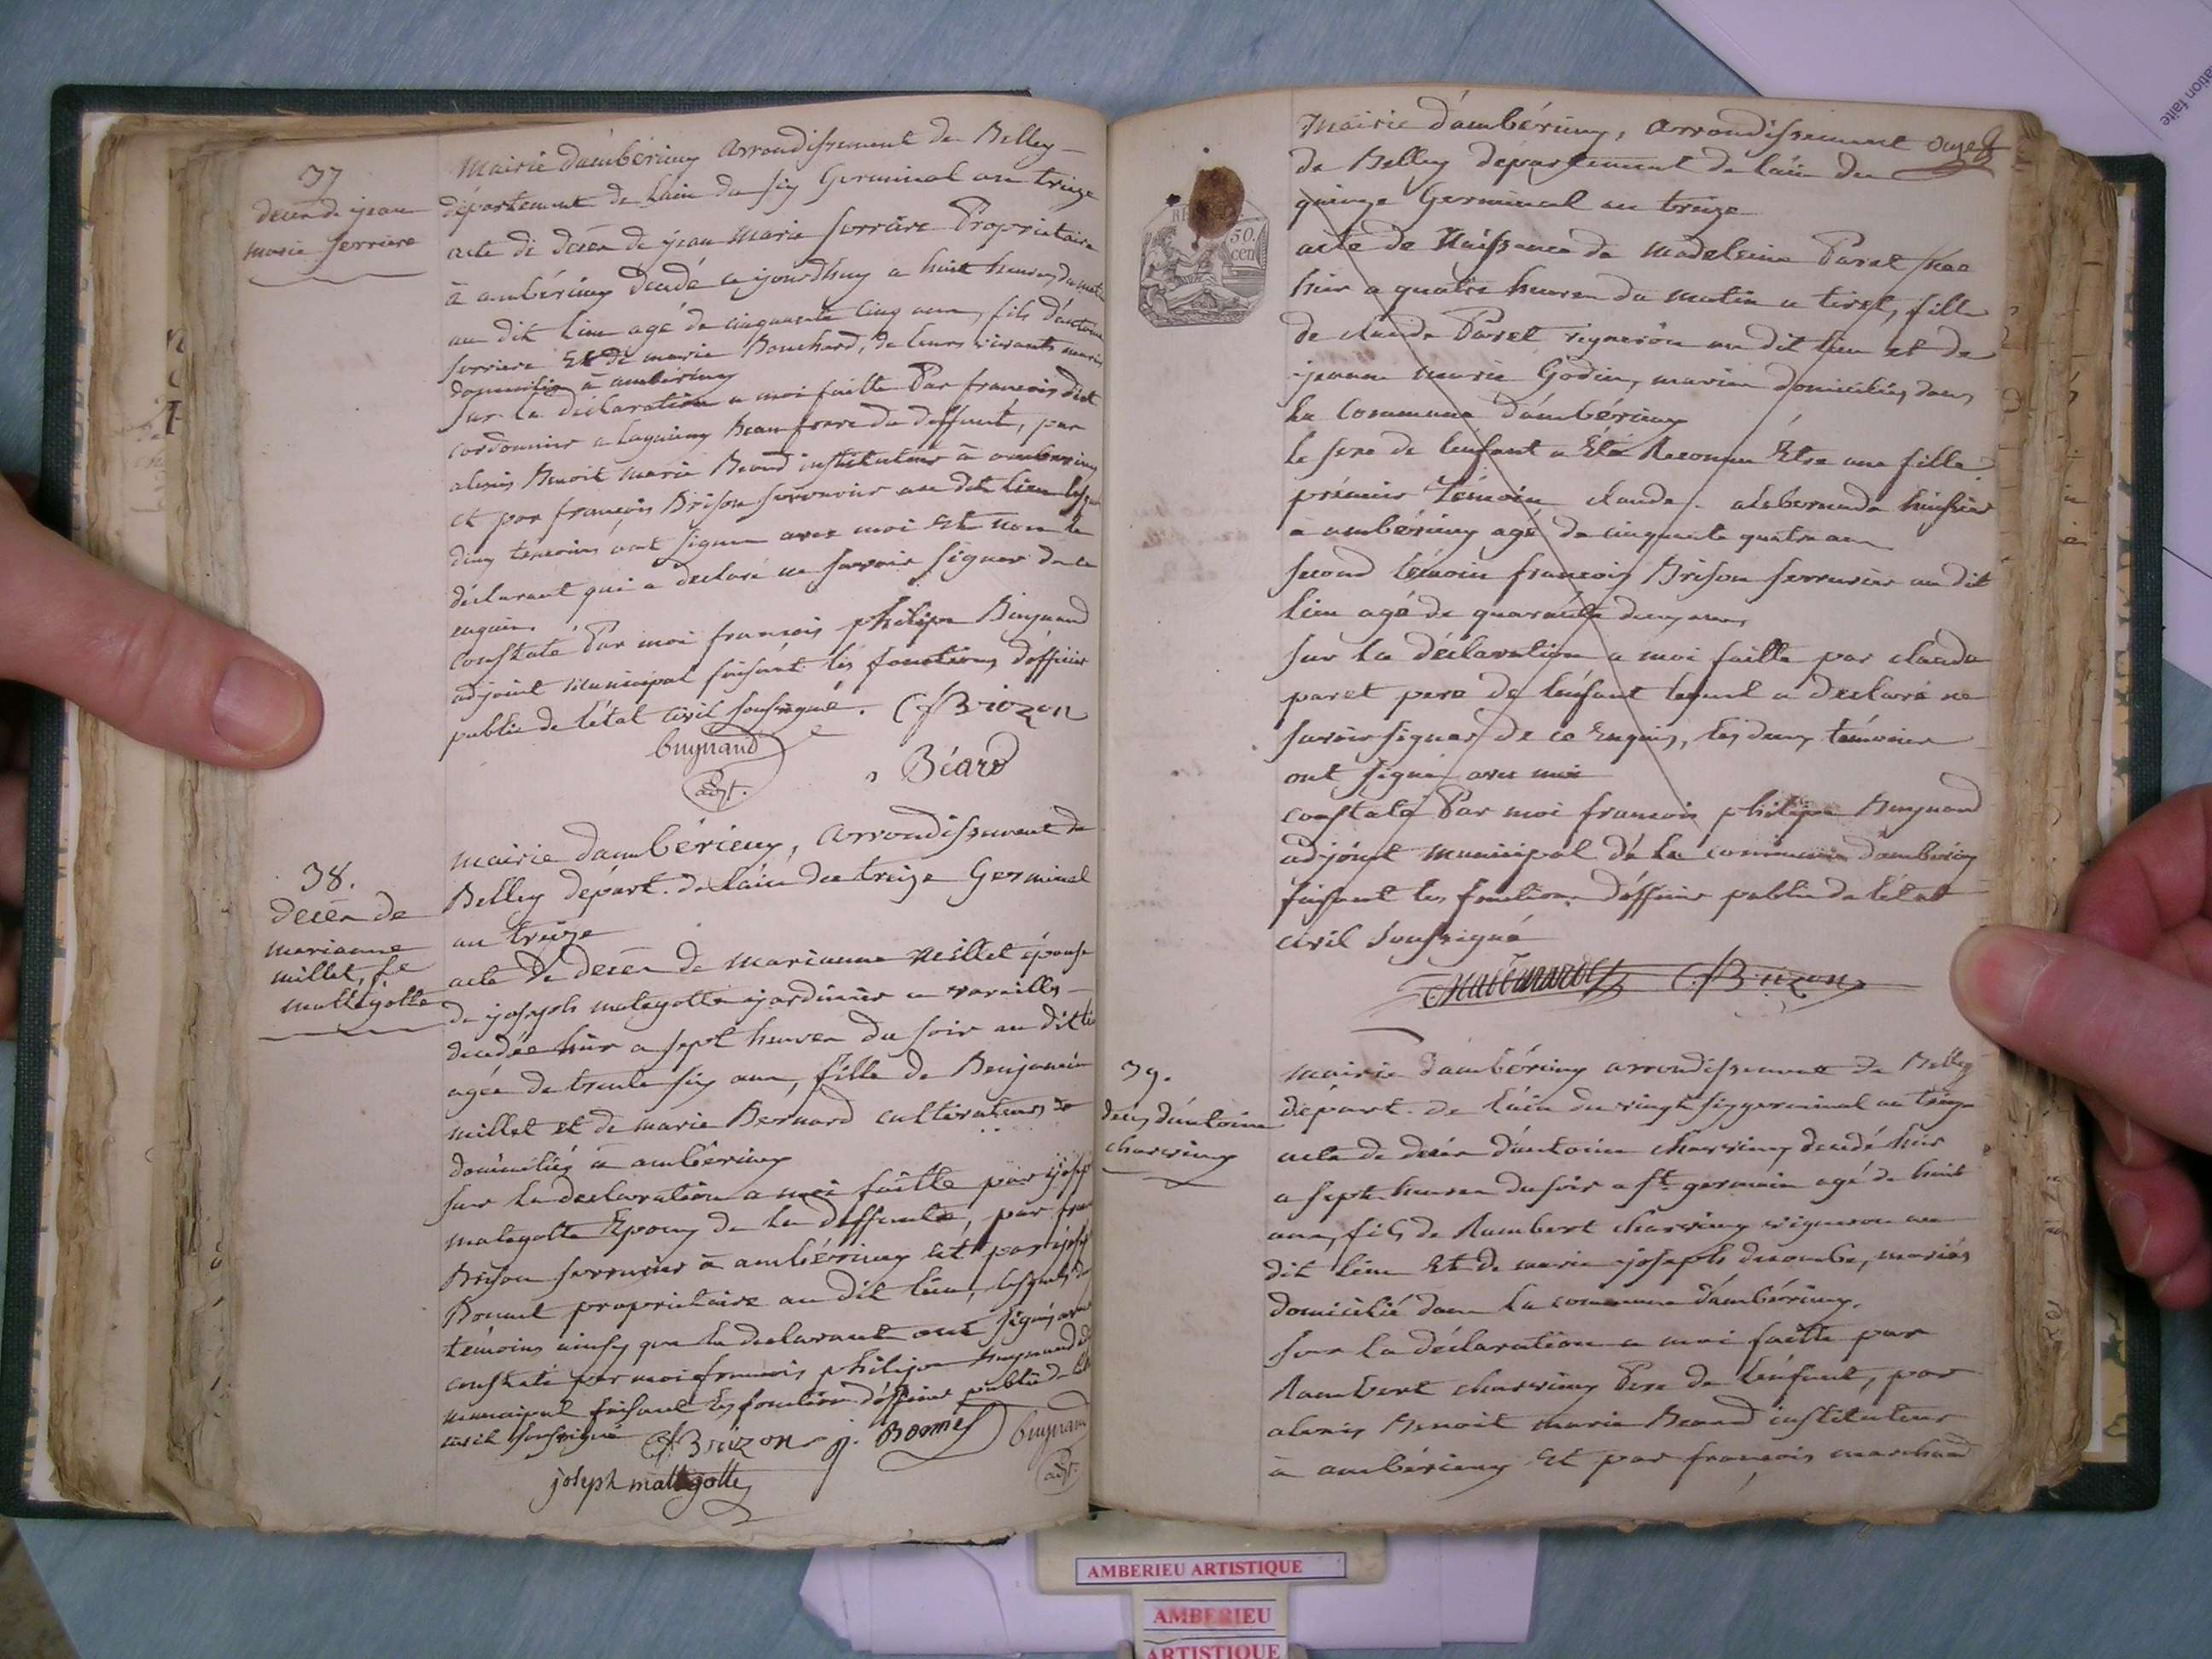 37
decen de jean
marie serriere
Mairie d'ambérieux arrondissement de Belley
département de lain du six Germinal an treize
acte de decen de jean marie serriere Propriétaire
à ambérieux décédé ajourdhuy a huit heures du matin
au dit lieu agé de cinquante cinq ans, fils d'antoine
serriere Et de marie Bouchard, de leurs vivants mariés
domiciliés à ambérieux
sur la déclaration a moi faitte Par francois
cordonnier a lagnieux beau frere du deffunt, par
alexis Benoit marie Beard instituteur à ambérieux
et par francois Brison serrurier au dit lieu lesquels
deux temoins ont signés avec moi et non le
déclarant qui a déclaré ne savoir signer de ce
enquis
constaté Par moi francois philipe Bugnand
adjoint municipal faisant les fonctions d'officier
public de l'état civil sousigné. CfBrizon
bugnand
adjt.
Béard
38.
decen de
marianne
millet, fe
mattegotte
mairie dambérieux, arrondissement de
Belley départ. de lain du treize Germinal
an treize
acte de decen de marianne millet épouse
de joseph mategotte jardinier a vareilles
decedée hier a sept heures du soir au dit lieu
agée de trente six ans, fille de Benjamin
millet et de marie Bernard cultivateurs
domiciliés à ambérieux
sur la declaration a moi faitte par joseph
mategotte Epoux de la deffunte, par
Brison serrurier à ambérieux et par joseph
Bonnet propriétaire au dit lieu, lesquels
témoins ainsy que le declarant ont signés avec
constaté par moi francois philipe bugnand adj
municipal faisant les fonction d'officier public de
civil sousigné CfBrizon j. Bonnet bugnand
joseph mattegotte adjt.
Mairie d'ambérieux, arrondissement onze
de Belley département de lain du
quinze Germinal an treize
RÉP. FRA.
50.
cen
acte de Naissance de madeleine Paret née
hier a quatre heures du matin a tiret, fille
de claude Paret vigneron au dit lieu et de
jeanne marie Godin, mariés domiciliés dans
la commune d'ambérieux
le sexe de lenfant a Eté Reconnu Etre une fille
prémier témoin claude alabernarde huissier
a ambérieux agé de cinquante quatre ans
second témoin francois Brison serrurier au dit
lieu agé de quarante deux ans
sur la déclaration a moi faitte par claude
paret pere de lénfant lequel a declaré ne
savoir signer de ce Enquis, les deux témoins
ont signé avec moi
constaté Par moi francois philipe Bugnand
adjoint municipal de la commune d'ambérieux
faisant les fonctions d'officier public de létat
civil sousigné
CfBrizon
39.
decen d'antoine
charvieux
mairie d'ambérieux arrondissement de Belley
départ. de lain du vingt six germinal an treize
acte de decen d'antoine charvieux decedé hier
a sept heures du soir a st germain agé de huit
ans, fils de Rambert charvieux vigneron au
dit lieu Et de marie joseph decombe, mariés
domicilié dans la commune d'ambérieux.
sur la déclaration a moi faitte par
Rambert charvieux Pere de lénfant, par
alexis Benoit marie Beard instituteur
à ambérieux Et par francois marchand
AMBERIEU ARTISTIQUE
AMBERIEU
ARTISTIQUE
ation faite